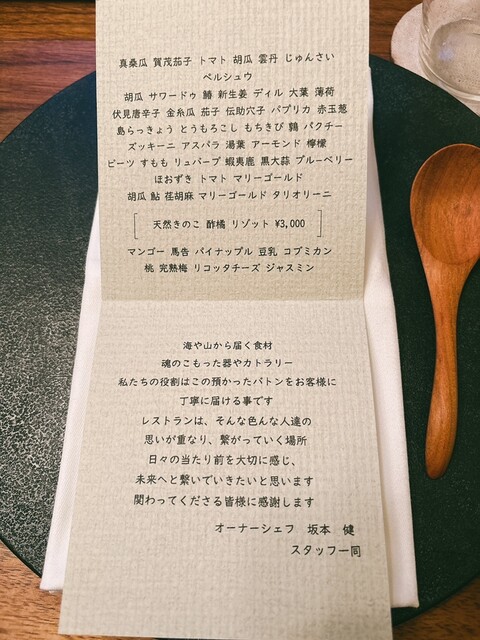 真桑瓜 賀茂茄子 トマト 胡瓜 雲丹 じゅんさい
ペルシュウ
胡瓜 サワードゥ 鱚 新生姜 ディル 大葉 薄荷
伏見唐辛子 金糸瓜 茄子 伝助穴子 パプリカ 赤玉葱
島らっきょう とうもろこし もちきび 鶉 パクチー
ズッキーニ アスパラ 湯葉 アーモンド 檸檬
ビーツ すもも リュバーブ 蝦夷鹿 黒大蒜 ブルーベリー
ほおずき トマト マリーゴールド
胡瓜 鮎 荏胡麻 マリーゴールド タリオリーニ
天然きのこ 酢橘 リゾット ¥3,000
マンゴー 馬告 パイナップル 豆乳 コブミカン
桃 完熟梅 リコッタチーズ ジャスミン
海や山から届く食材
魂のこもった器やカトラリー
私たちの役割はこの預かったバトンをお客様に
丁寧に届ける事です
レストランは、そんな色んな人達の
思いが重なり、繋がっていく場所
日々の当たり前を大切に感じ、
未来へと繋いでいきたいと思います
関わってくださる皆様に感謝します
オーナーシェフ 坂本 健
スタッフ一同